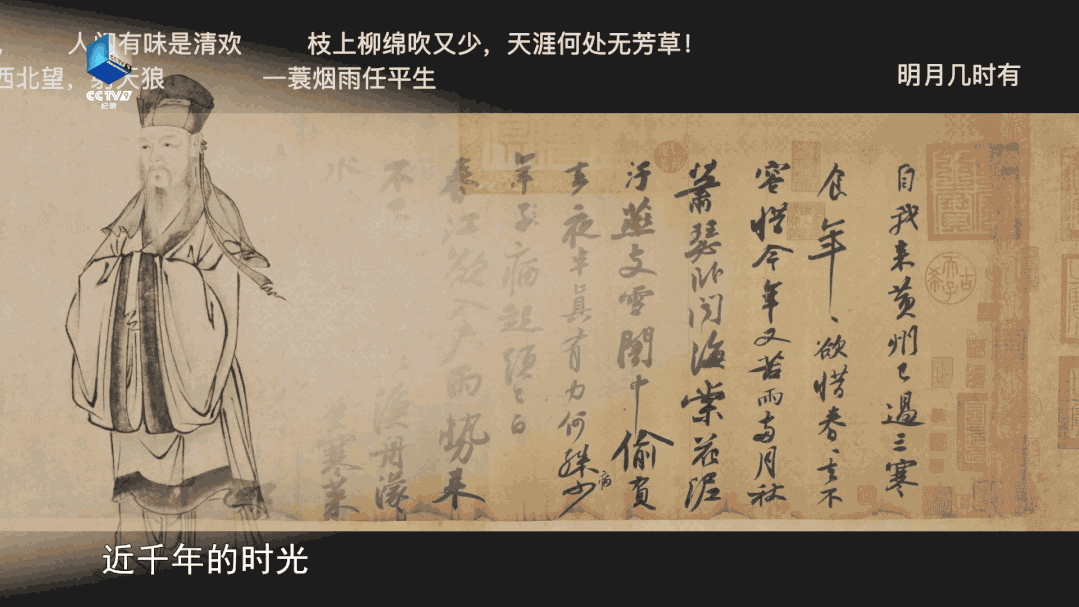 人间有味是清欢 枝上柳绵吹又少，天涯何处无芳草！
西北望，射天狼 一蓑烟雨任平生 明月几时有
CCTV9
纪录
自我来黄州已過三寒
食年、欲惜春、去不
容惜今年又苦雨兩月秋
蕭瑟卧聞海棠花泥
汙燕支雪闇中偷負
去夜半真有力何殊少
病
年子病起須已白
春江欲入户雨勢来
不已 漁舟濛
水 寒菜
近千年的时光